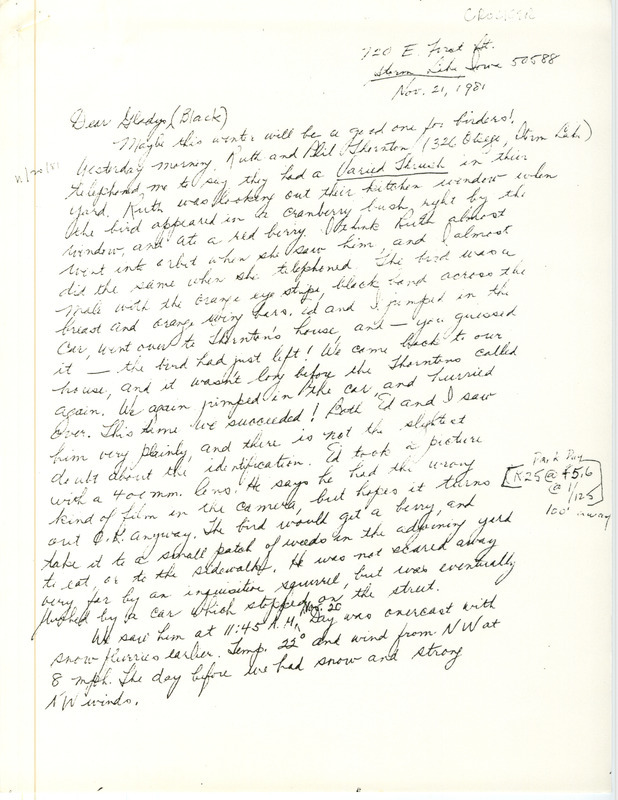 CROCKER
720 E. First St.
Storm Lake Iowa 50588
Nov. 21, 1981
Dear Gladys (Black)
Maybe this winter will be a good one for birders!
11/20/81
Yesterday morning Ruth and Phil Thornton (1326 Otsego, Storm Lake)
telephoned me to say they had a Varied Thrush in their
yard. Ruth was looking out their kitchen window when
the bird appeared in a cranberry bush right by the
window, and ate a red berry. I think Ruth almost
went into orbit when she saw him, and I almost
did the same when she telephoned. The bird was a
male with the orange eye stripe, black band across the
breast and orange wing bars. Ed and I jumped in the
car, went over to Thornton's house, and — you guessed
it — the bird had just left! We came back to our
house, and it wasn't long before the Thorntons called
again. We again jumped in the car, and hurried
over. This time we succeeded! Both Ed and I saw
him very plainly, and there is not the slightest
doubt about the identification. Ed took a picture
with a 400 mm. lens. He says he had the wrong
kind of film in the camera, but hopes it turns
[K25 @ f5.6
@ 1/125]
100' away
out O.K. anyway. The bird would get a berry, and
take it to a small patch of weeds in the adjoining yard
to eat, or to the sidewalk. He was not scared away
very far by an inquisitive squirrel, but was eventually
flushed by a car which stopped on the street.
We saw him at 11:45 A.M. Nov. 20 Day was overcast with
snow flurries earlier. Temp. 22° and wind from NW at
8 mph. The day before we had snow and strong
NW winds.